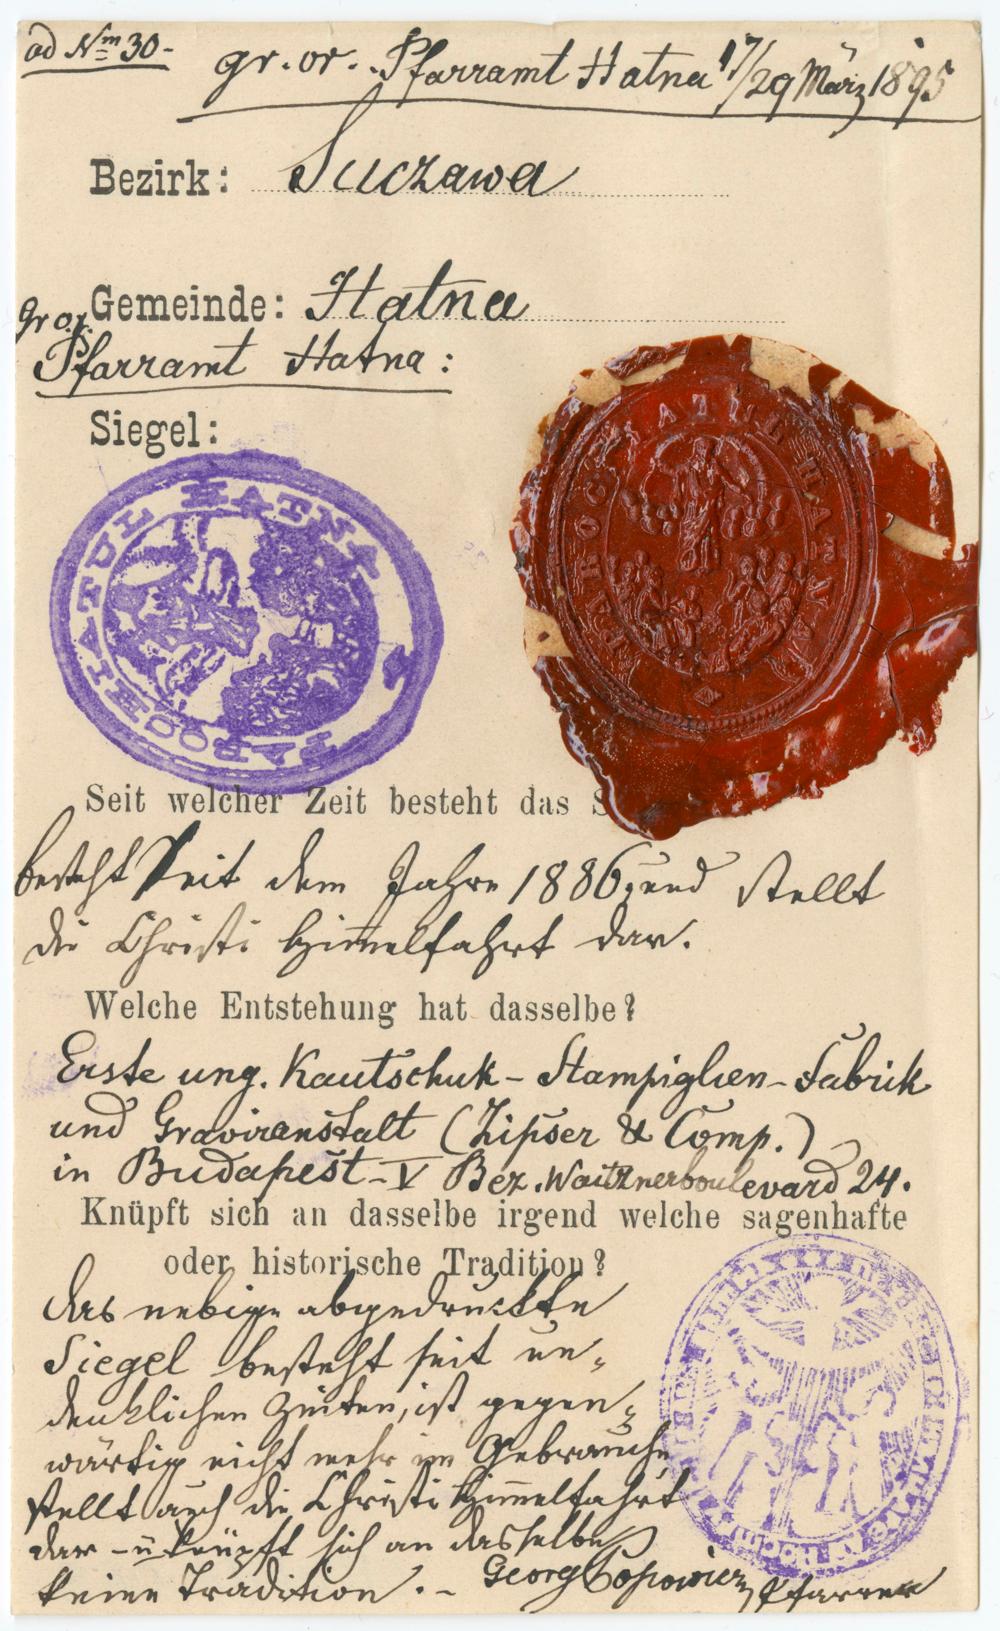 ad Nm 30-
gr. or. Pfarramt Hatna 17/29 März 1895
Bezirk: Suczawa
Gemeinde: Hatna
gr. or.
Pfarramt Hatna:
Siegel:
PAROCHIATUL HATNA
PAROCHIATUL HATNA
Seit welcher Zeit besteht das S
besteht seit dem Jahre 1886, und stellt
die Christi Himmelfahrt dar.
Welche Entstehung hat dasselbe?
Erste ung. Kautschuk- Stampiglien- Fabrik
und Graviranstalt (Zipser & Comp.)
in Budapest - V Bez. Waitznerboulevard 24.
Knüpft sich an dasselbe irgend welche sagenhafte
oder historische Tradition?
das nebige abgedruckte
Siegel besteht seit un-
denklichen Zeiten, ist gegen-
wärtig nicht mehr im Gebrauche
stellt auch die Christi Himmelfahrt
dar - u knüpft sich an dasselbe
keine Tradition. - Georg Popowicz, Pfarrer